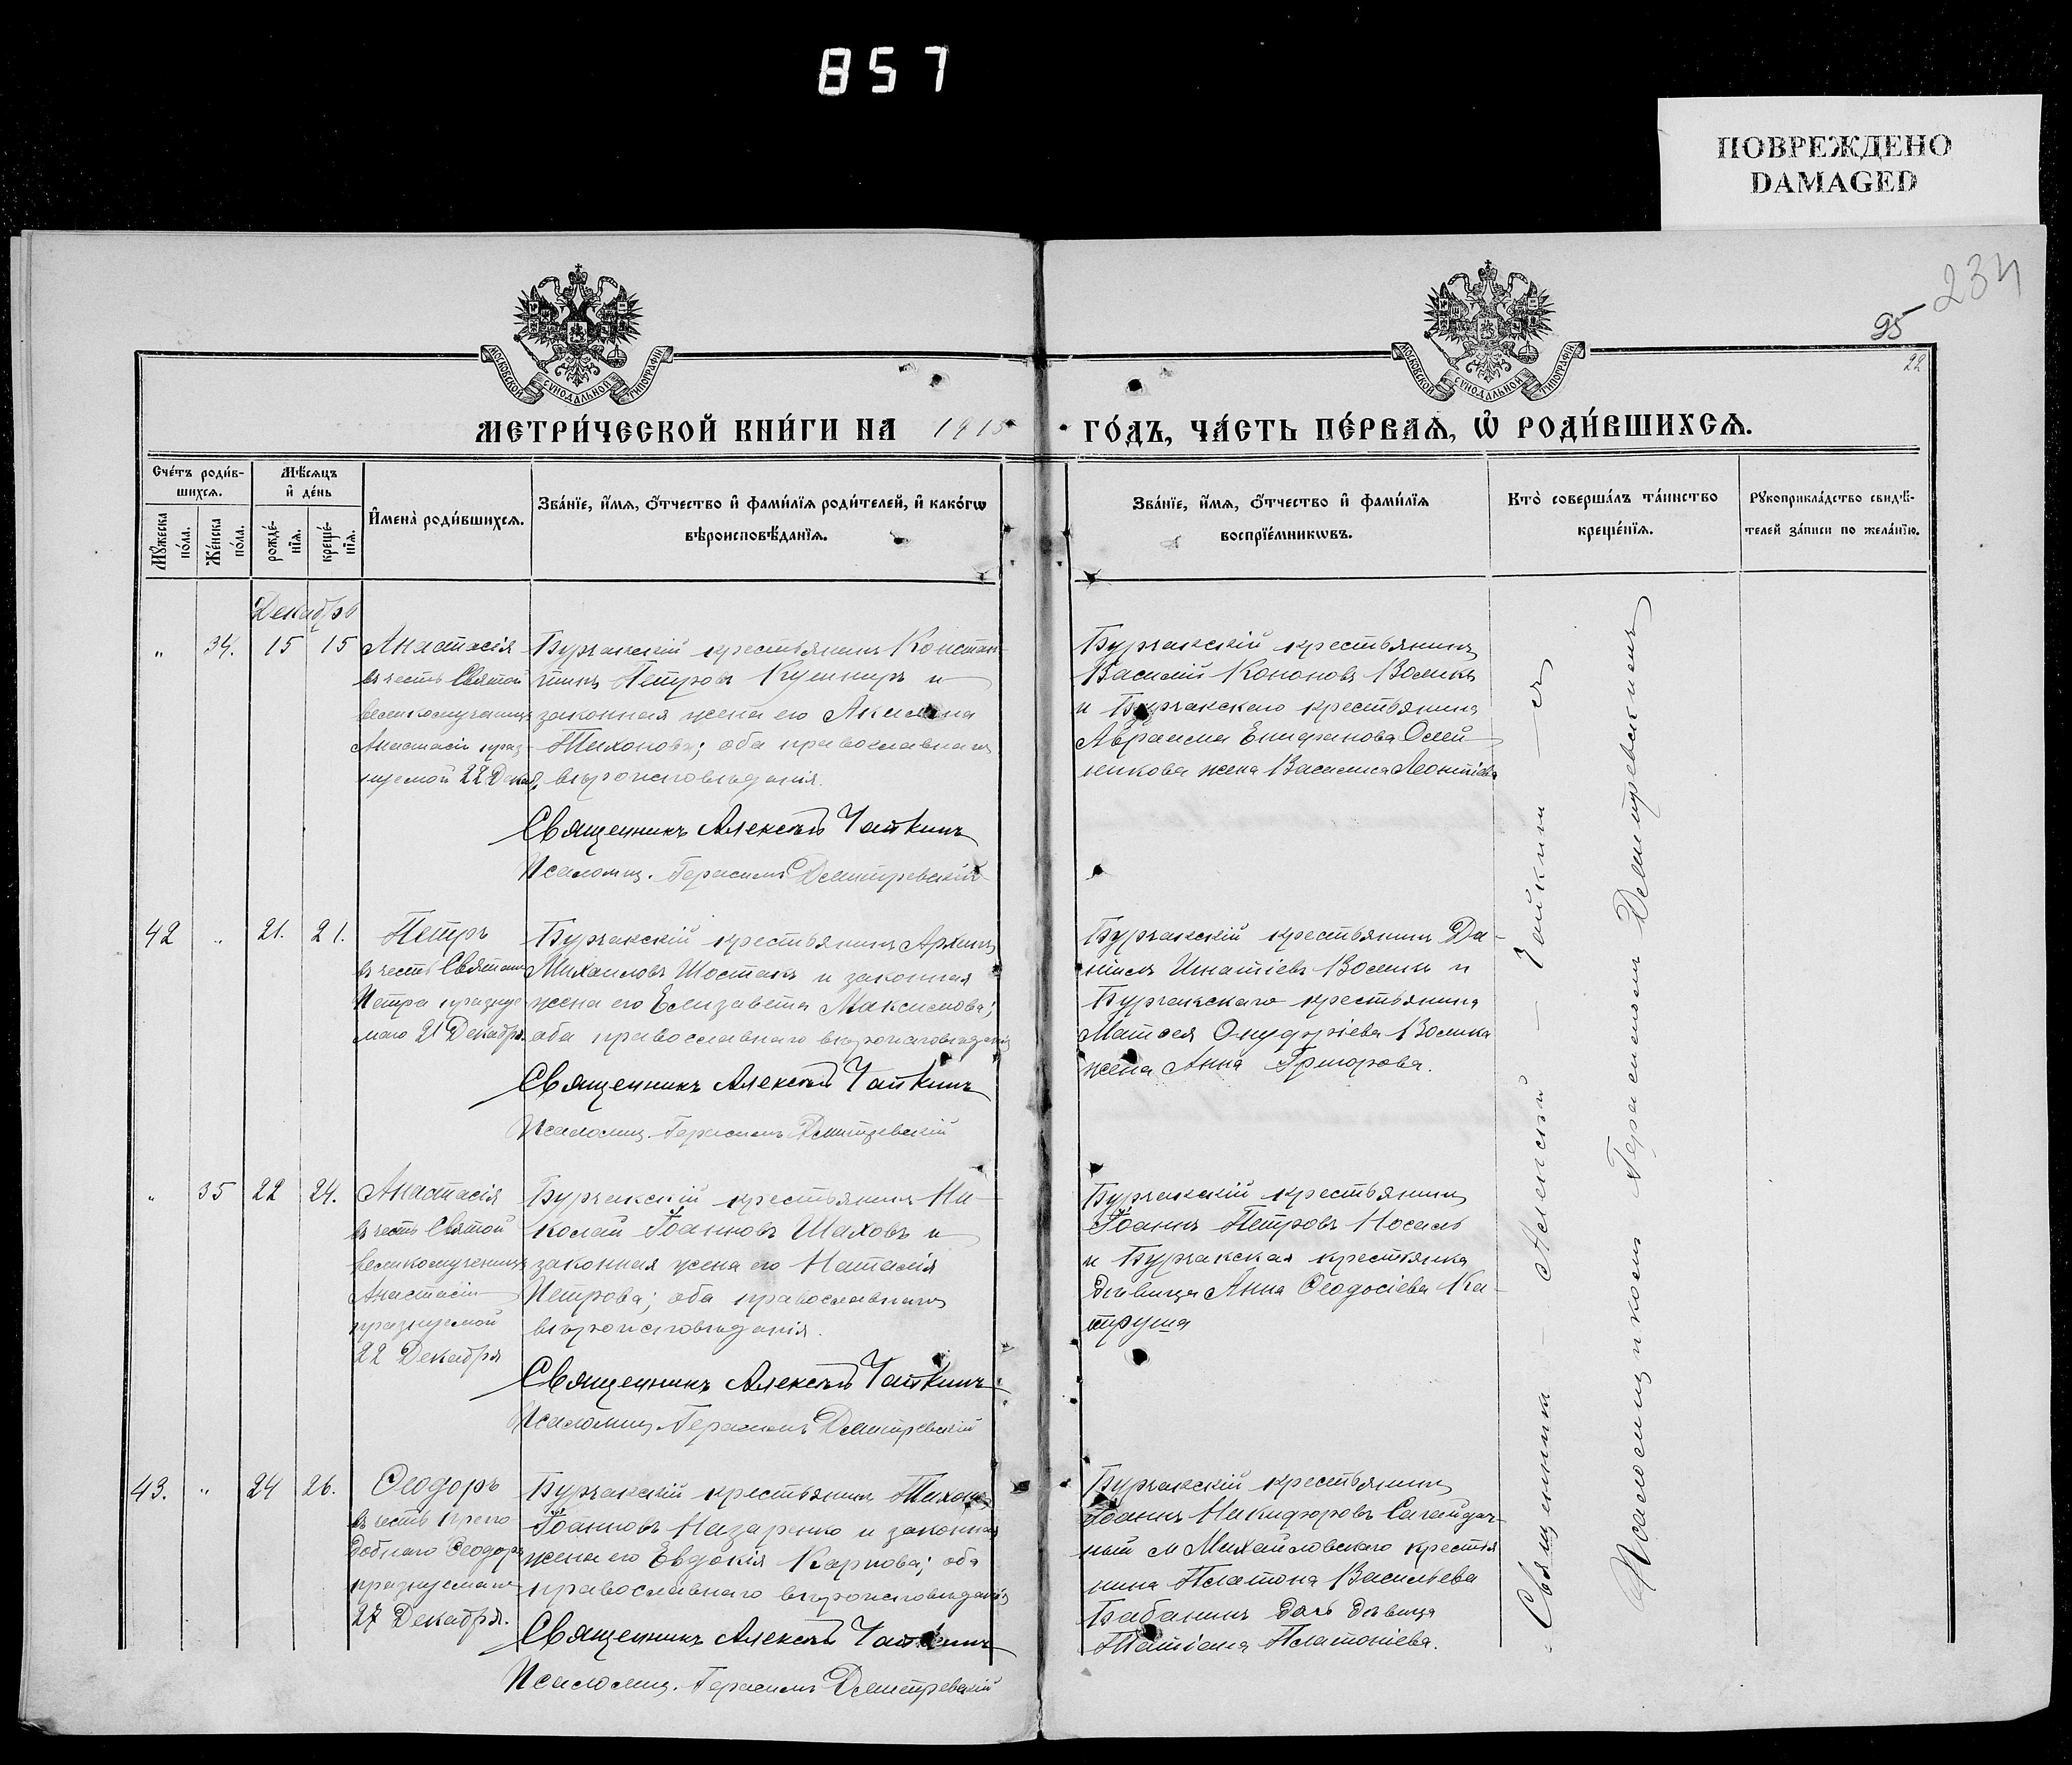 857
ПОВРЕЖДЕНО
DAMAGED
234
95
22
МОСКОВСКОЙ СѴНОДАЛЬНОЙ ТИПОГРАФІИ
МОСКОВСКОЙ СѴНОДАЛЬНОЙ ТИПОГРАФІИ
МЕТРИ́ЧЕСКОЙ КНИ́ГИ НА 1915 ГО́ДЪ, ЧА́СТЬ ПЕ́РВАѦ, Ѡ҆ РОДИ́ВШИХСѦ.
Счѐтъ роди́в-
шихсѧ.
Мꙋ́жеска по́ла.
Же́нска по́ла.
Мѣ́сѧцъ
и҆ де́нь
рожде́-
нїѧ.
креще́-
нїѧ.
И҆мена̀ роди́вшихсѧ.
Зва́нїе, и҆́мѧ, ѻ҆́тчество и҆ фами́лїѧ роди́телей, и҆ како́гѡ
вѣроисповѣ́данїѧ.
Зва́нїе, и҆́мѧ, ѻ҆́тчество и҆ фами́лїѧ
воспрїе́мникѡвъ.
Кто̀ соверша́лъ та́инство
креще́нїѧ.
Рꙋкоприкла́дство свидѣ́-
телей за́писи по жела́нїю.
Декабрь
" 34. 15 15 Анастасія
въ честь Святой
великомученицы
Анастасіи праз-
нуемой 22 Декаб.
Бурчакскій крестьянинъ Констан-
тинъ Петровъ Кушниръ и
законная жена его Акилина
Тихонова; оба православнаго
вѣроисповѣданія.
Священникъ Алексѣй Чайкинъ
Псаломщ. Герасимъ Димитревскій
Бурчакскій крестьянинъ
Василій Кононовъ Воликъ
и Бурчакскаго крестьянина
Авраама Епифанова Олей-
никова жена Василиса Леонтіева
42 " 21. 21. Петръ
въ честь Святаго
Петра празнуе-
маго 21 Декабря.
Бурчакскій крестьянинъ Архипъ
Михаиловъ Шостакъ и законная
жена его Елизавета Максимова;
оба православнаго вѣроисповѣданія
Священникъ Алексѣй Чайкинъ
Псаломщ. Герасимъ Димитревскій
Бурчакскій крестьянинъ Да-
ніилъ Игнатіевъ Воликъ и
Бурчакскаго крестьянина
Матѳея Онуфріева Волика
жена Анна Григорова.
" 35 22 24. Анастасія
въ честь Святой
великомученицы
Анастасіи
празнуемой
22 Декабря
Бурчакскій крестьянинъ Ни-
колай Іоанновъ Шаховъ и
законная жена его Наталія
Петрова; оба православнаго
вѣроисповѣданія.
Священникъ Алексѣй Чайкинъ
Псаломщ. Герасимъ Димитревскій
Бурчакскій крестьянинъ
Іоаннъ Петровъ Носаль
и Бурчакская крестьянка
дѣвица Анна Ѳеодосіева Ка-
труша
43. " 24 26. Ѳеодоръ
въ честь препо
добнаго Ѳеодора
празнуемаго
27 Декабря.
Бурчакскій крестьянинъ Тихонъ
Іоанновъ Назаренко и законная
жена его Евдокія Карпова; оба
православнаго вѣроисповѣданія
Священникъ Алексѣй Чайкинъ
Псаломщ. Герасимъ Димитревскій
Бурчакскій крестьянинъ
Іоаннъ Никифоровъ Сагайдач-
ный и Михайловскаго крестья
нина Платона Васильева
Бабанинъ дочь дѣвица
Татіана Платоніева.
Священникъ – Алексѣй – Чайкинъ – съ
Псаломщикомъ Герасимомъ Димитревскимъ